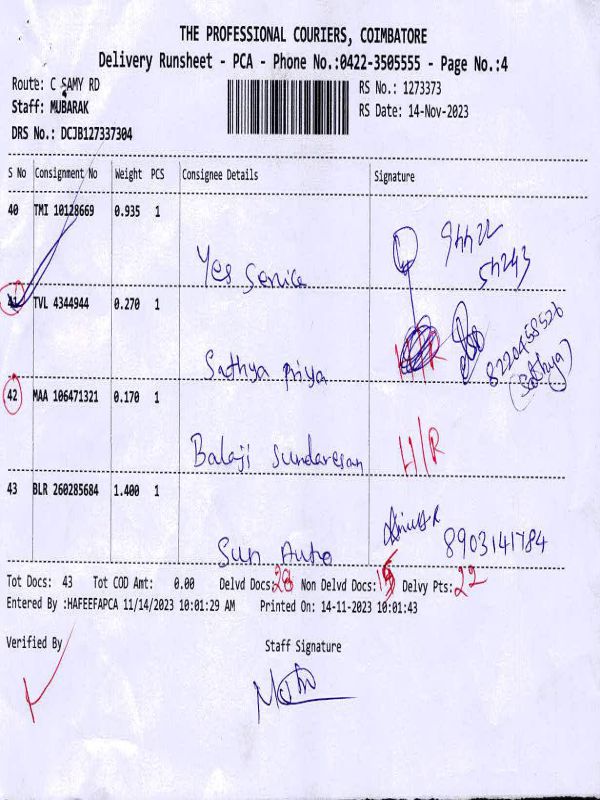 THE PROFESSIONAL COURIERS, COIMBATORE
Delivery Runsheet - PCA - Phone No.:0422-3505555 - Page No.:4
Route: C SAMY RD RS No.: 1273373
Staff: MUBARAK RS Date: 14-Nov-2023
DRS No.: DCJB127337304
S No Consignment No Weight PCS Consignee Details Signature
40 TMI 10128669 0.935 1
94422
54243
Yes Service
41 TVL 4344944 0.270 1
8220458526
(Sathya)
Sathya priya H/R
42 MAA 106471321 0.170 1
Balaji Sundaresan H/R
43 BLR 260285684 1.400 1
8903141784
Sun Auto
Tot Docs: 43 Tot COD Amt: 0.00 Delvd Docs:28 Non Delvd Docs:15 Delvy Pts:22
Entered By :HAFEEFAPCA 11/14/2023 10:01:29 AM Printed On: 14-11-2023 10:01:43
Verified By Staff Signature